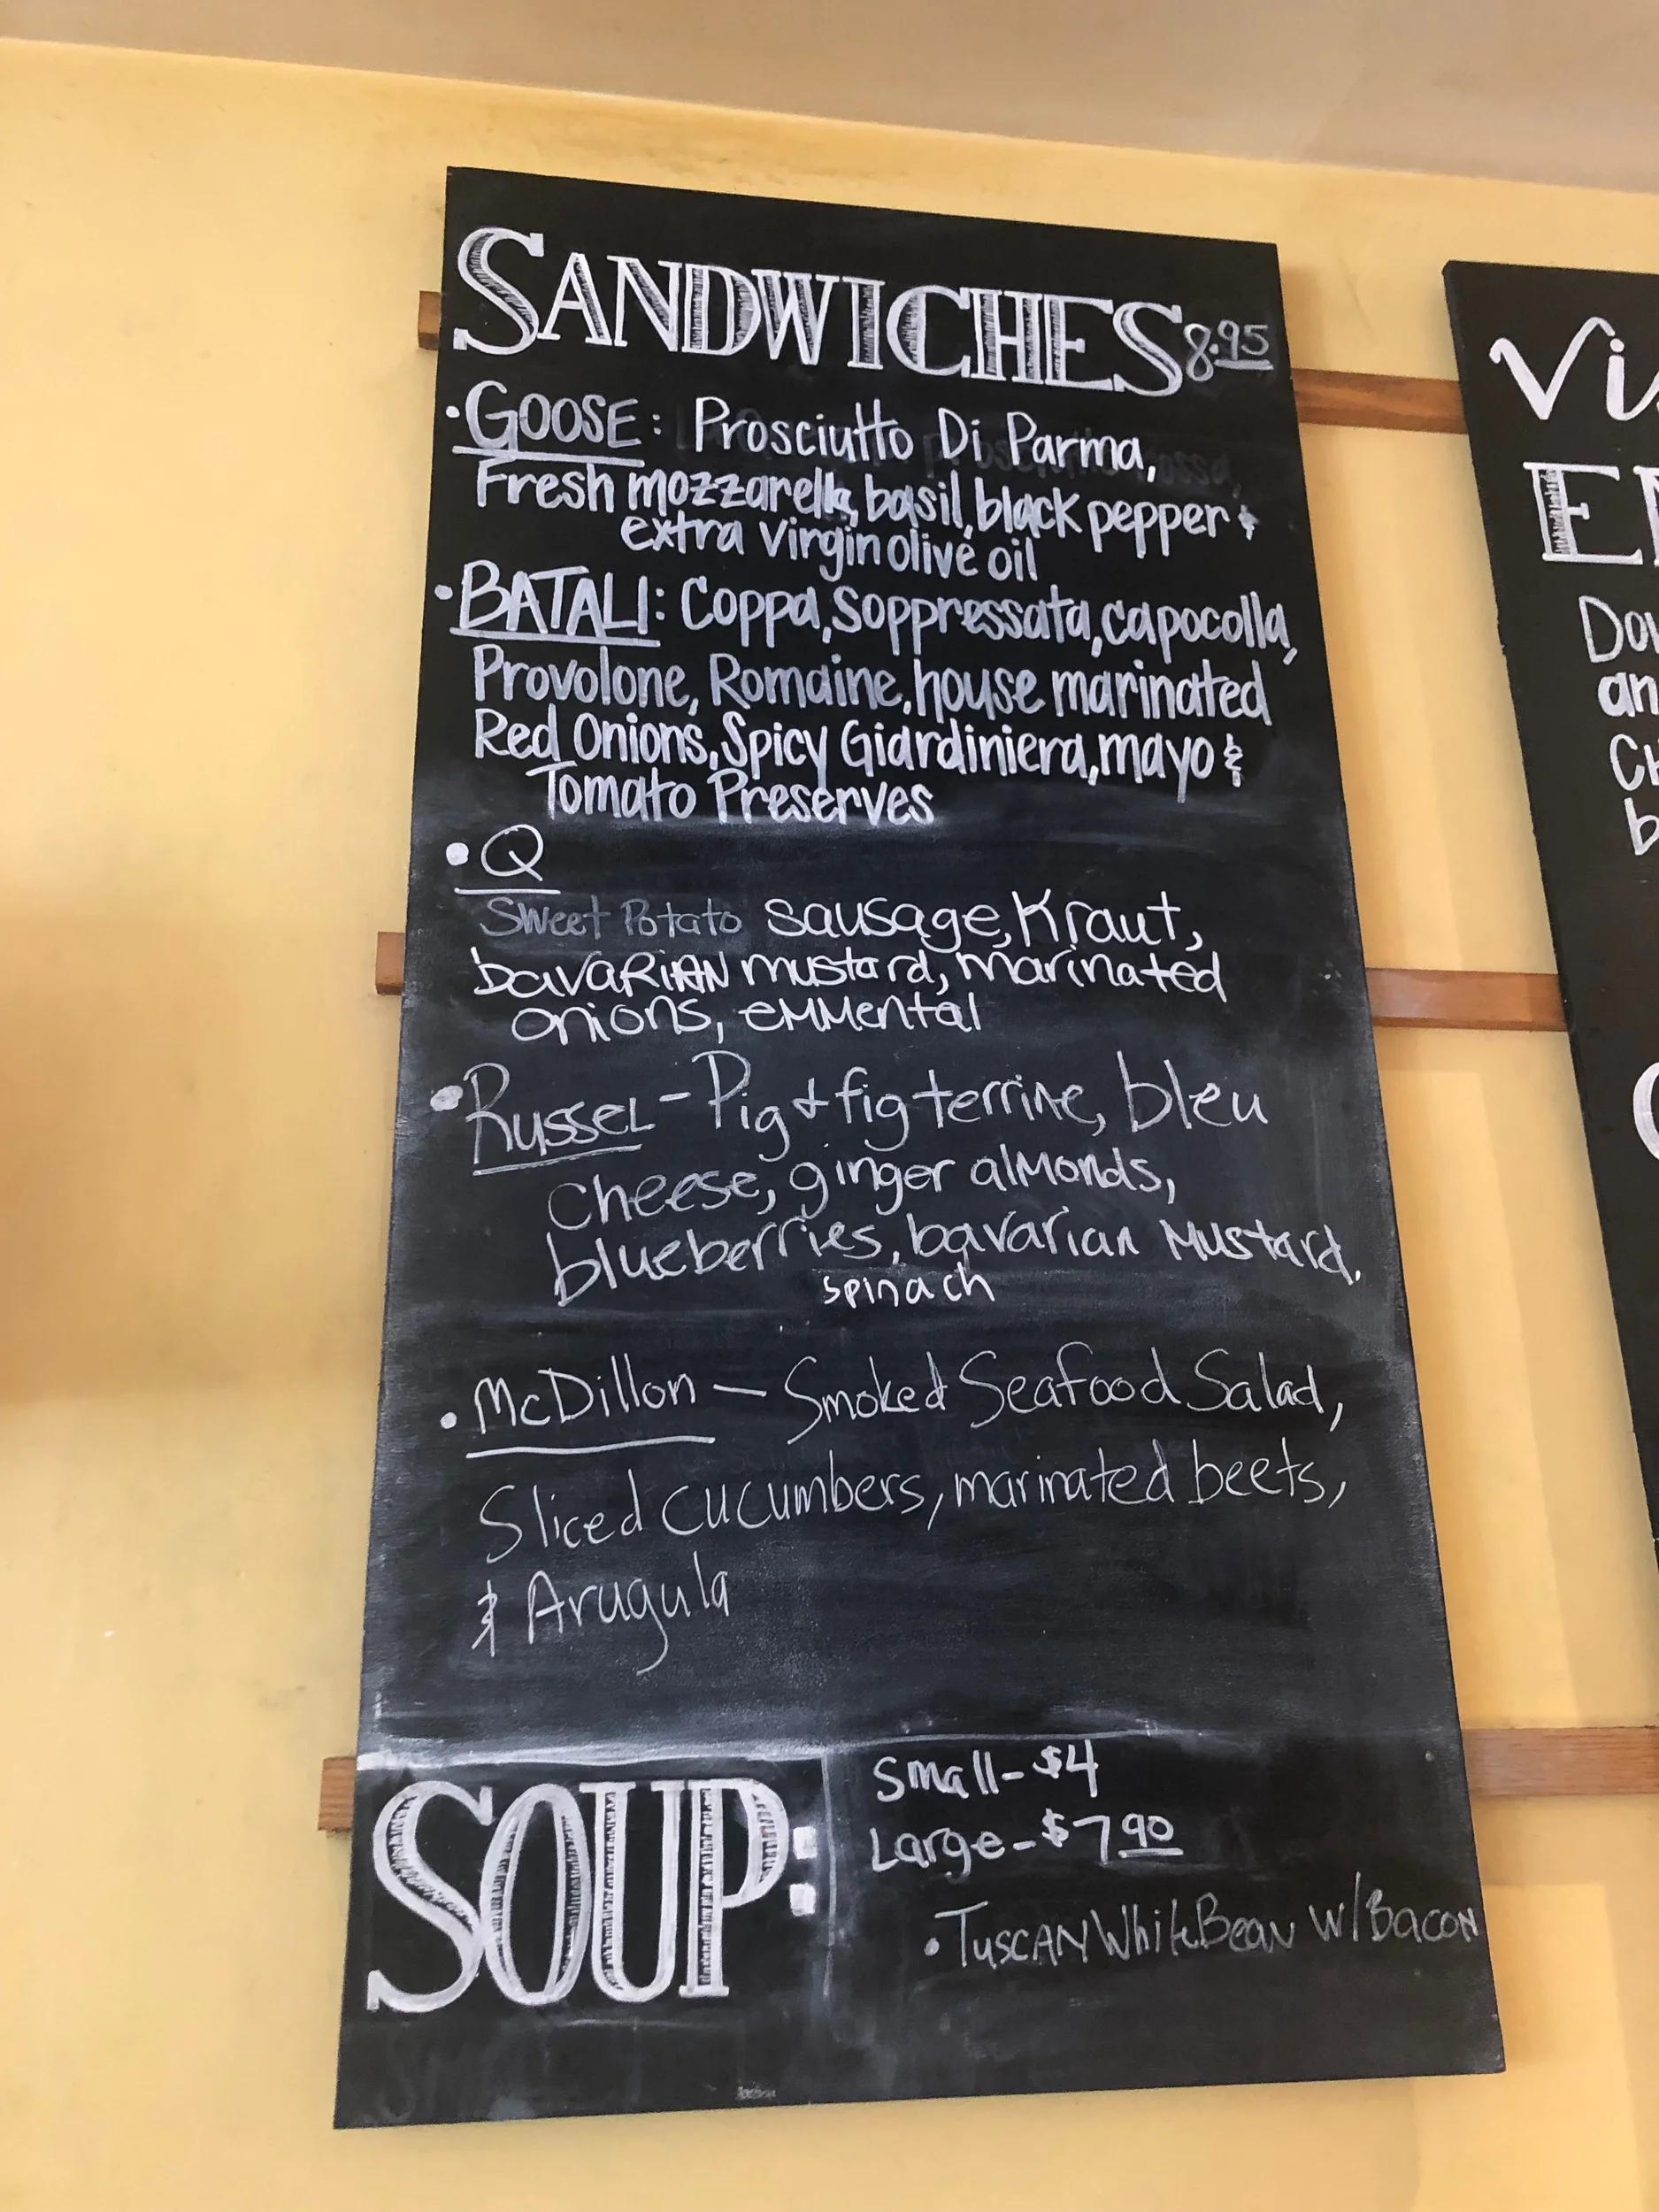 SANDWICHES 8.95
• GOOSE: Prosciutto Di Parma,
Fresh mozzarella, basil, black pepper &
extra virgin olive oil
• BATALI: Coppa, Soppressata, capocolla,
Provolone, Romaine, house marinated
Red Onions, Spicy Giardiniera, mayo &
Tomato Preserves
• Q
Sweet Potato sausage, Kraut,
bavaRiAN mustard, marinated
onions, emmental
• Russel - Pig & fig terrine, bleu
cheese, ginger almonds,
blueberries, bavarian mustard.
spinach
• McDillon - Smoked Seafood Salad,
Sliced cucumbers, marinated beets,
& Arugula
SOUP:
Small - $4
Large - $7 90
• Tuscan White Bean w/ Bacon
Vi
E
an
b